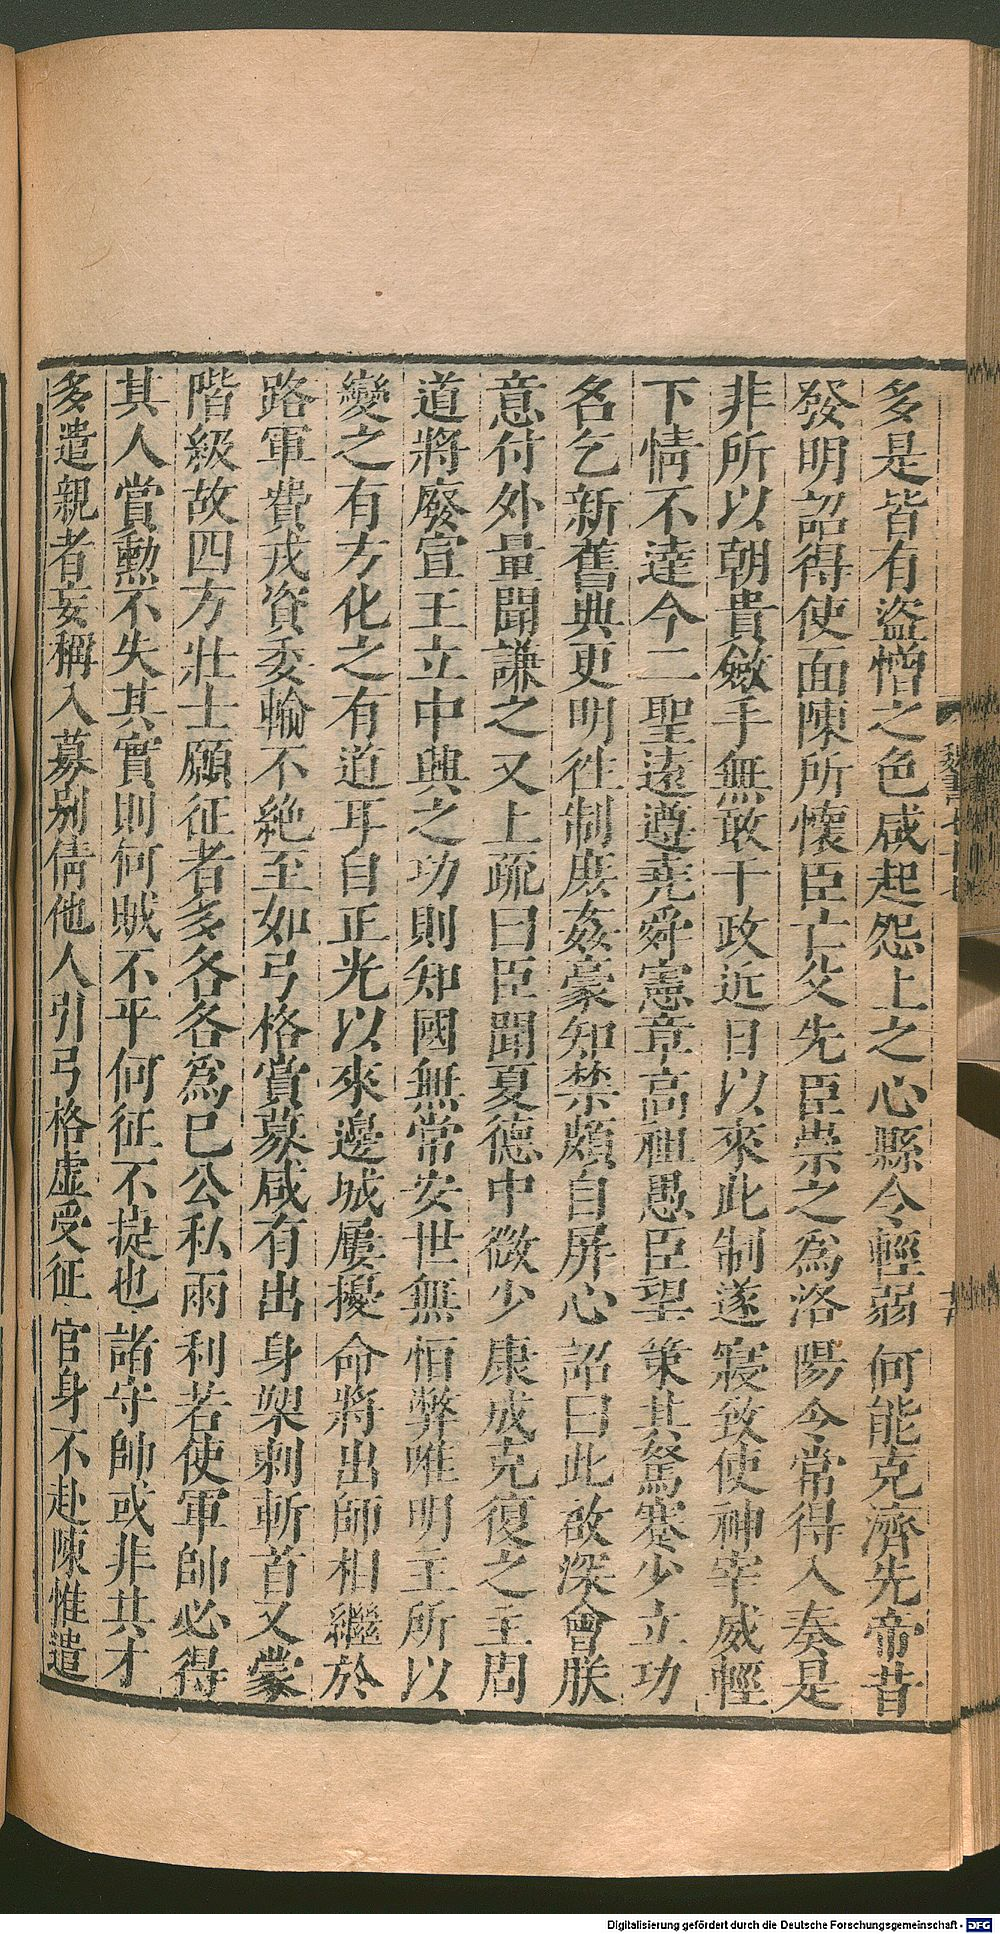 多是皆有盜憎之色咸起怨上之心縣令輕弱何能克濟先帝昔
發明詔得使面陳所懷臣亡父先臣崇之爲洛陽令常得入奏是
非所以朝貴斂手無敢干政近日以來此制遂寢致使神宰威輕
下情不達今二聖遠遵堯舜憲章高祖愚臣望策其駑蹇少立功
名乞新舊典更明往制庶姦豪知禁頗自屏心詔曰此啟深會朕
意付外量聞謙之又上疏曰臣聞夏德中微少康成克復之主周
道將廢宣王立中興之功則知國無常安世無恒弊唯明主所以
變之有方化之有道耳自正光以來邊城屢擾命將出師相繼於
路軍費戎資委輸不絕至如弓格賞募咸有出身槊刺斬首又蒙
階級故四方壯士願征者多各各爲己公私兩利若使軍帥必得
其人賞勳不失其實則何賊不平何征不捷也諸守帥或非其才
多遣親者妄稱入募別倩他人引弓格虛受征官身不赴陳惟遣
魏書七十七
Digitalisierung gefördert durch die Deutsche Forschungsgemeinschaft - DFG